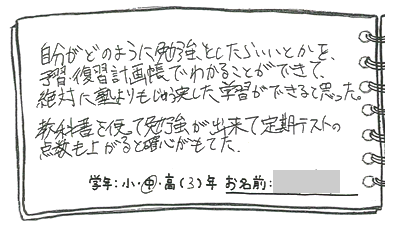 自分がどのように勉強としたらいいとかを、
予習・復習計画帳でわかることができて、
絶対に塾よりもじゅう実した学習ができると思った。
教科書を使って勉強が出来て定期テストの
点数も上がると確心がもてた。
学年:小・中・高(3)年 お名前: